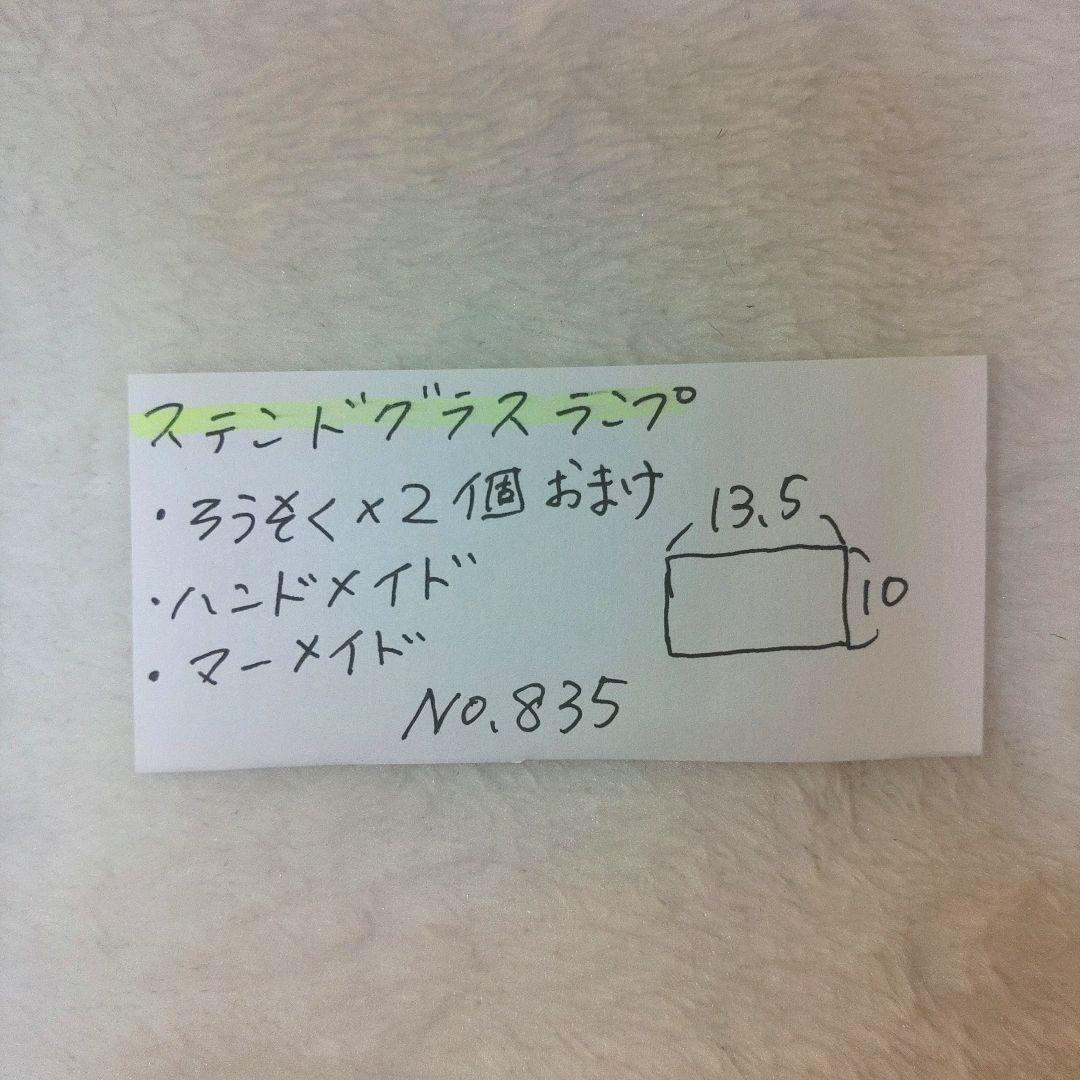 ステンドグラスランプ
・ろうそく×2個 おまけ
・ハンドメイド
・マーメイド
No.835
13.5
10